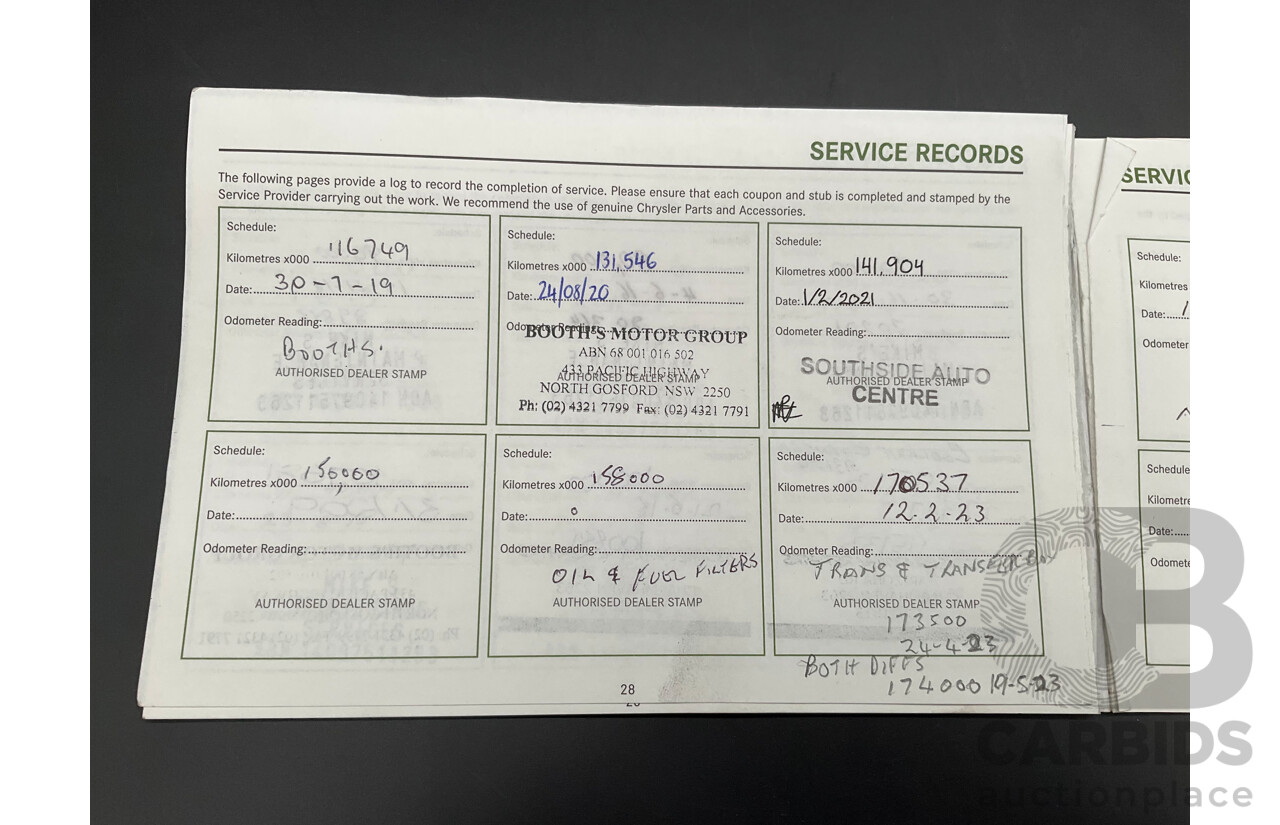 SERVICE RECORDS
The following pages provide a log to record the completion of service. Please ensure that each coupon and stub is completed and stamped by the
Service Provider carrying out the work. We recommend the use of genuine Chrysler Parts and Accessories.
Schedule:
Kilometres x000 116749
Date: 30-7-19
Odometer Reading:
BOOTHS.
AUTHORISED DEALER STAMP
Schedule:
Kilometres x000 131,546
Date: 24/08/20
Odometer Reading:
BOOTH'S MOTOR GROUP
ABN 68 001 016 502
433 PACIFIC HIGHWAY
AUTHORISED DEALER STAMP
NORTH GOSFORD, NSW 2250
Ph: (02) 4321 7799 Fax: (02) 4321 7791
Schedule:
Kilometres x000 141,904
Date: 1/2/2021
Odometer Reading:
SOUTHSIDE AUTO
AUTHORISED DEALER STAMP
CENTRE
Schedule:
Kilometres x000 150,000
Date:
Odometer Reading:
AUTHORISED DEALER STAMP
Schedule:
Kilometres x000 158000
Date:
Odometer Reading:
OIL & FUEL FILTERS
AUTHORISED DEALER STAMP
Schedule:
Kilometres x000 170537
Date: 12.2.23
Odometer Reading:
TRANS & TRANSFER
AUTHORISED DEALER STAMP
173500
24-4-23
BOTH DIFFS
174000 19-5-23
28
SERVIC
Schedule:
Kilometres
Date:
Odometer
Schedule
Kilometre
Date:
Odomete
CARBIDS
auctionplace